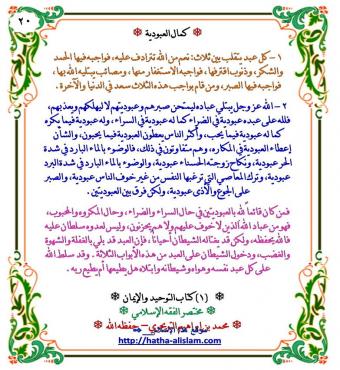 ٢٠
كمال العبودية
١ – كل عبد يتقلب بين ثلاث: نعم من الله تترادف عليه، فواجبه فيها الحمد
والشكر، وذنوب اقترفها، فواجبه الاستغفار منها، ومصائب يبتليه الله بها،
فواجبه فيها الصبر، ومن قام بواجب هذه الثلاث سعد في الدنيا والآخرة.
٢ – الله عز وجل يبتلي عباده ليمتحن صبرهم وعبوديتهم لا ليهلكهم ويعذبهم،
فلله على عبده عبودية في الضراء كما له عبودية في السراء، وله عبودية فيما يكره
كما له عبودية فيما يحب، وأكثر الناس يعطون العبودية فيما يحبون، والشأن
إعطاء العبودية في المكاره، وهم متفاوتون في ذلك، فالوضوء بالماء البارد في شدة
الحر عبودية، ونكاح زوجته الحسناء عبودية، والوضوء بالماء البارد في شدة البرد
عبودية، وترك المعاصي التي ترغبها النفس من غير خوف الناس عبودية، والصبر
على الجوع والأذى عبودية، ولكن فرق بين العبوديتين.
فمن كان قائماً لله بالعبوديتين في حال السراء والضراء، وحال المكروه والمحبوب،
فهو من عباد الله الذين لا خوف عليهم ولا هم يحزنون، وليس لعدوه سلطان عليه
فالله يحفظه، ولكن قد يغتاله الشيطان أحياناً، فإن العبد قد بلي بالغفلة والشهوة
والغضب، ودخول الشيطان على العبد من هذه الأبواب الثلاثة. وقد سلط الله
على كل عبد نفسه وهواه وشيطانه وابتلاه هل يطيعها أم يطيع ربه.
(١) كتاب التوحيد والإيمان
مختصر الفقه الإسلامي
محمد بن إبراهيم التويجري – حفظه الله
http://hatha-alislam.com